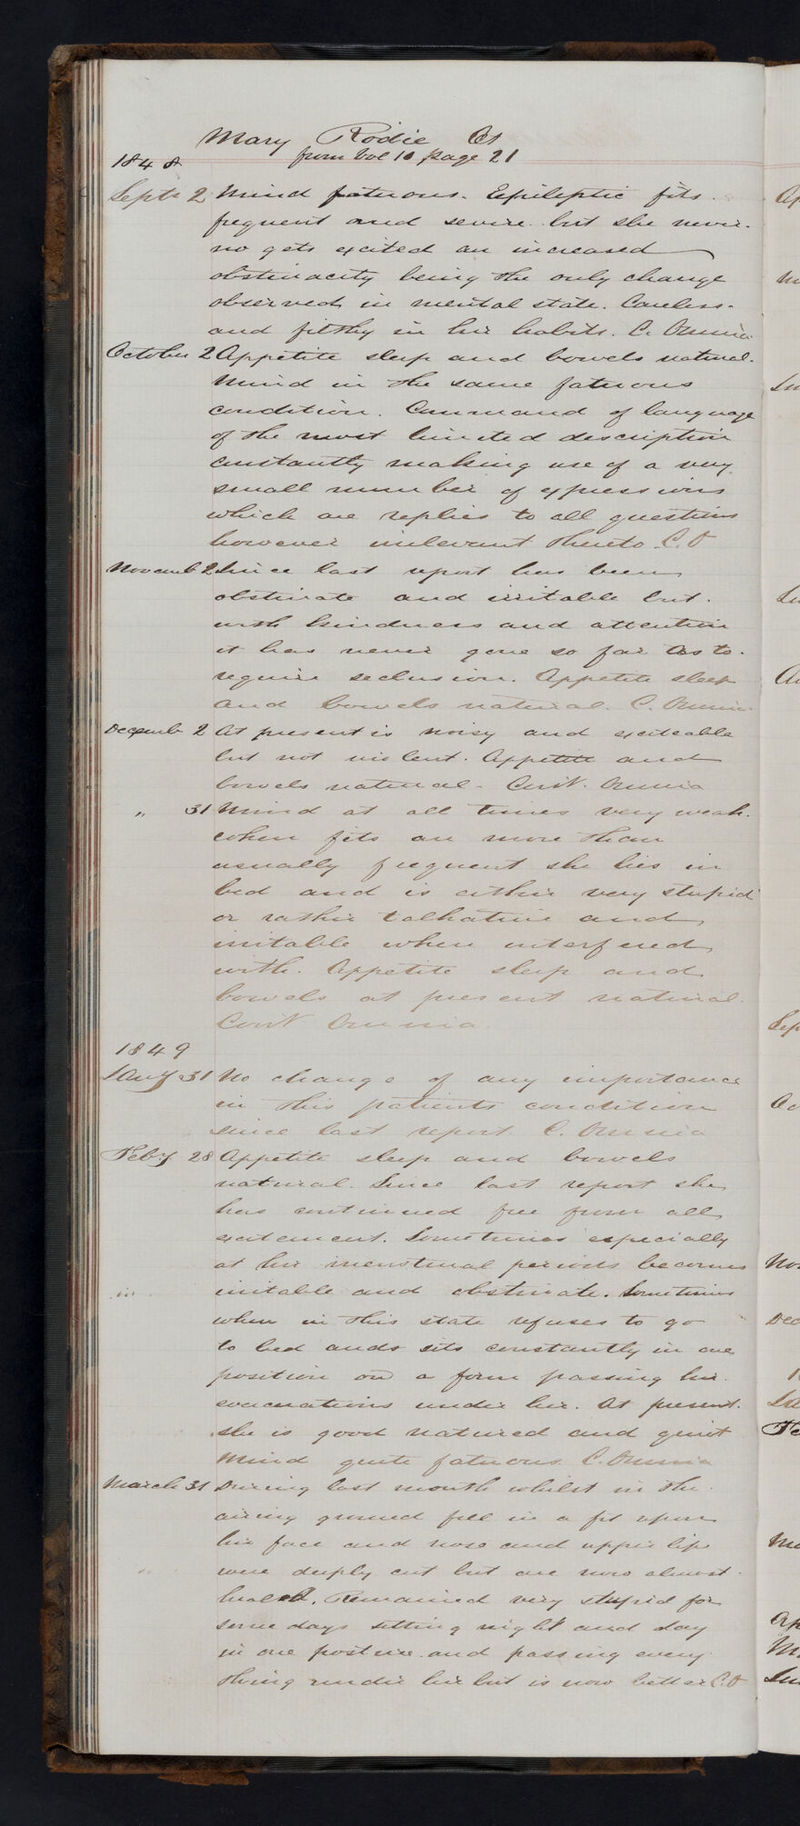 Mary Rodie
from Vol 10 page 21
1848
Septr 2 Mind fatuous. Epileptic fits
frequent and severe but she never
no gets excited an increased
obstinacity being the only change
observed in mental state. Careless
and filthy in her habits. C. Omnia
October 2 Appetite sleep and bowels natural.
Mind in the same fatuous
condition. Command of language
of the most limited description
constantly making use of a very
small number of expressions
which are replies to all questions
however irrelevant thereto C. O
Novemb 2 Since last report has been
obstinate and irritable but
with kindness and attention
it has never gone so far as to
require seclusion. Appetite sleep
and bowels natural. C. Omnia
Decemb 2 At present is noisy and exciteable
but not violent. Appetite and
bowels natural. Cont. Omnia
" 31 Mind at all times very weak.
when fits are more than
usually frequent she lies in
bed and is either very stupid
or rather talkative and
irritable when interfered
with. Appetite sleep and
bowels at present natural
Cont Omnia
1849
Jany 31 No change of any importance
in this patients condition
since last report C. Omnia
Feby 28 Appetite sleep and bowels
natural. Since last report she
has continued free from all
excitement. Sometimes especially
at her menstrual periods becomes
irritable and obstinate. Sometimes
when in this state refuses to go
to bed and sits constantly in one
position on a form passing her
evacuations under her. At present
she is good natured and quiet
Mind quite fatuous C. Omnia
March 31 During last month whilst in the
airing ground fell in a fit upon
her face and nose and upper lip
were deeply cut but are now almost
healed. Remained very stupid for
some days sitting night and day
in one posture and passing every
thing under her but is now better C. O